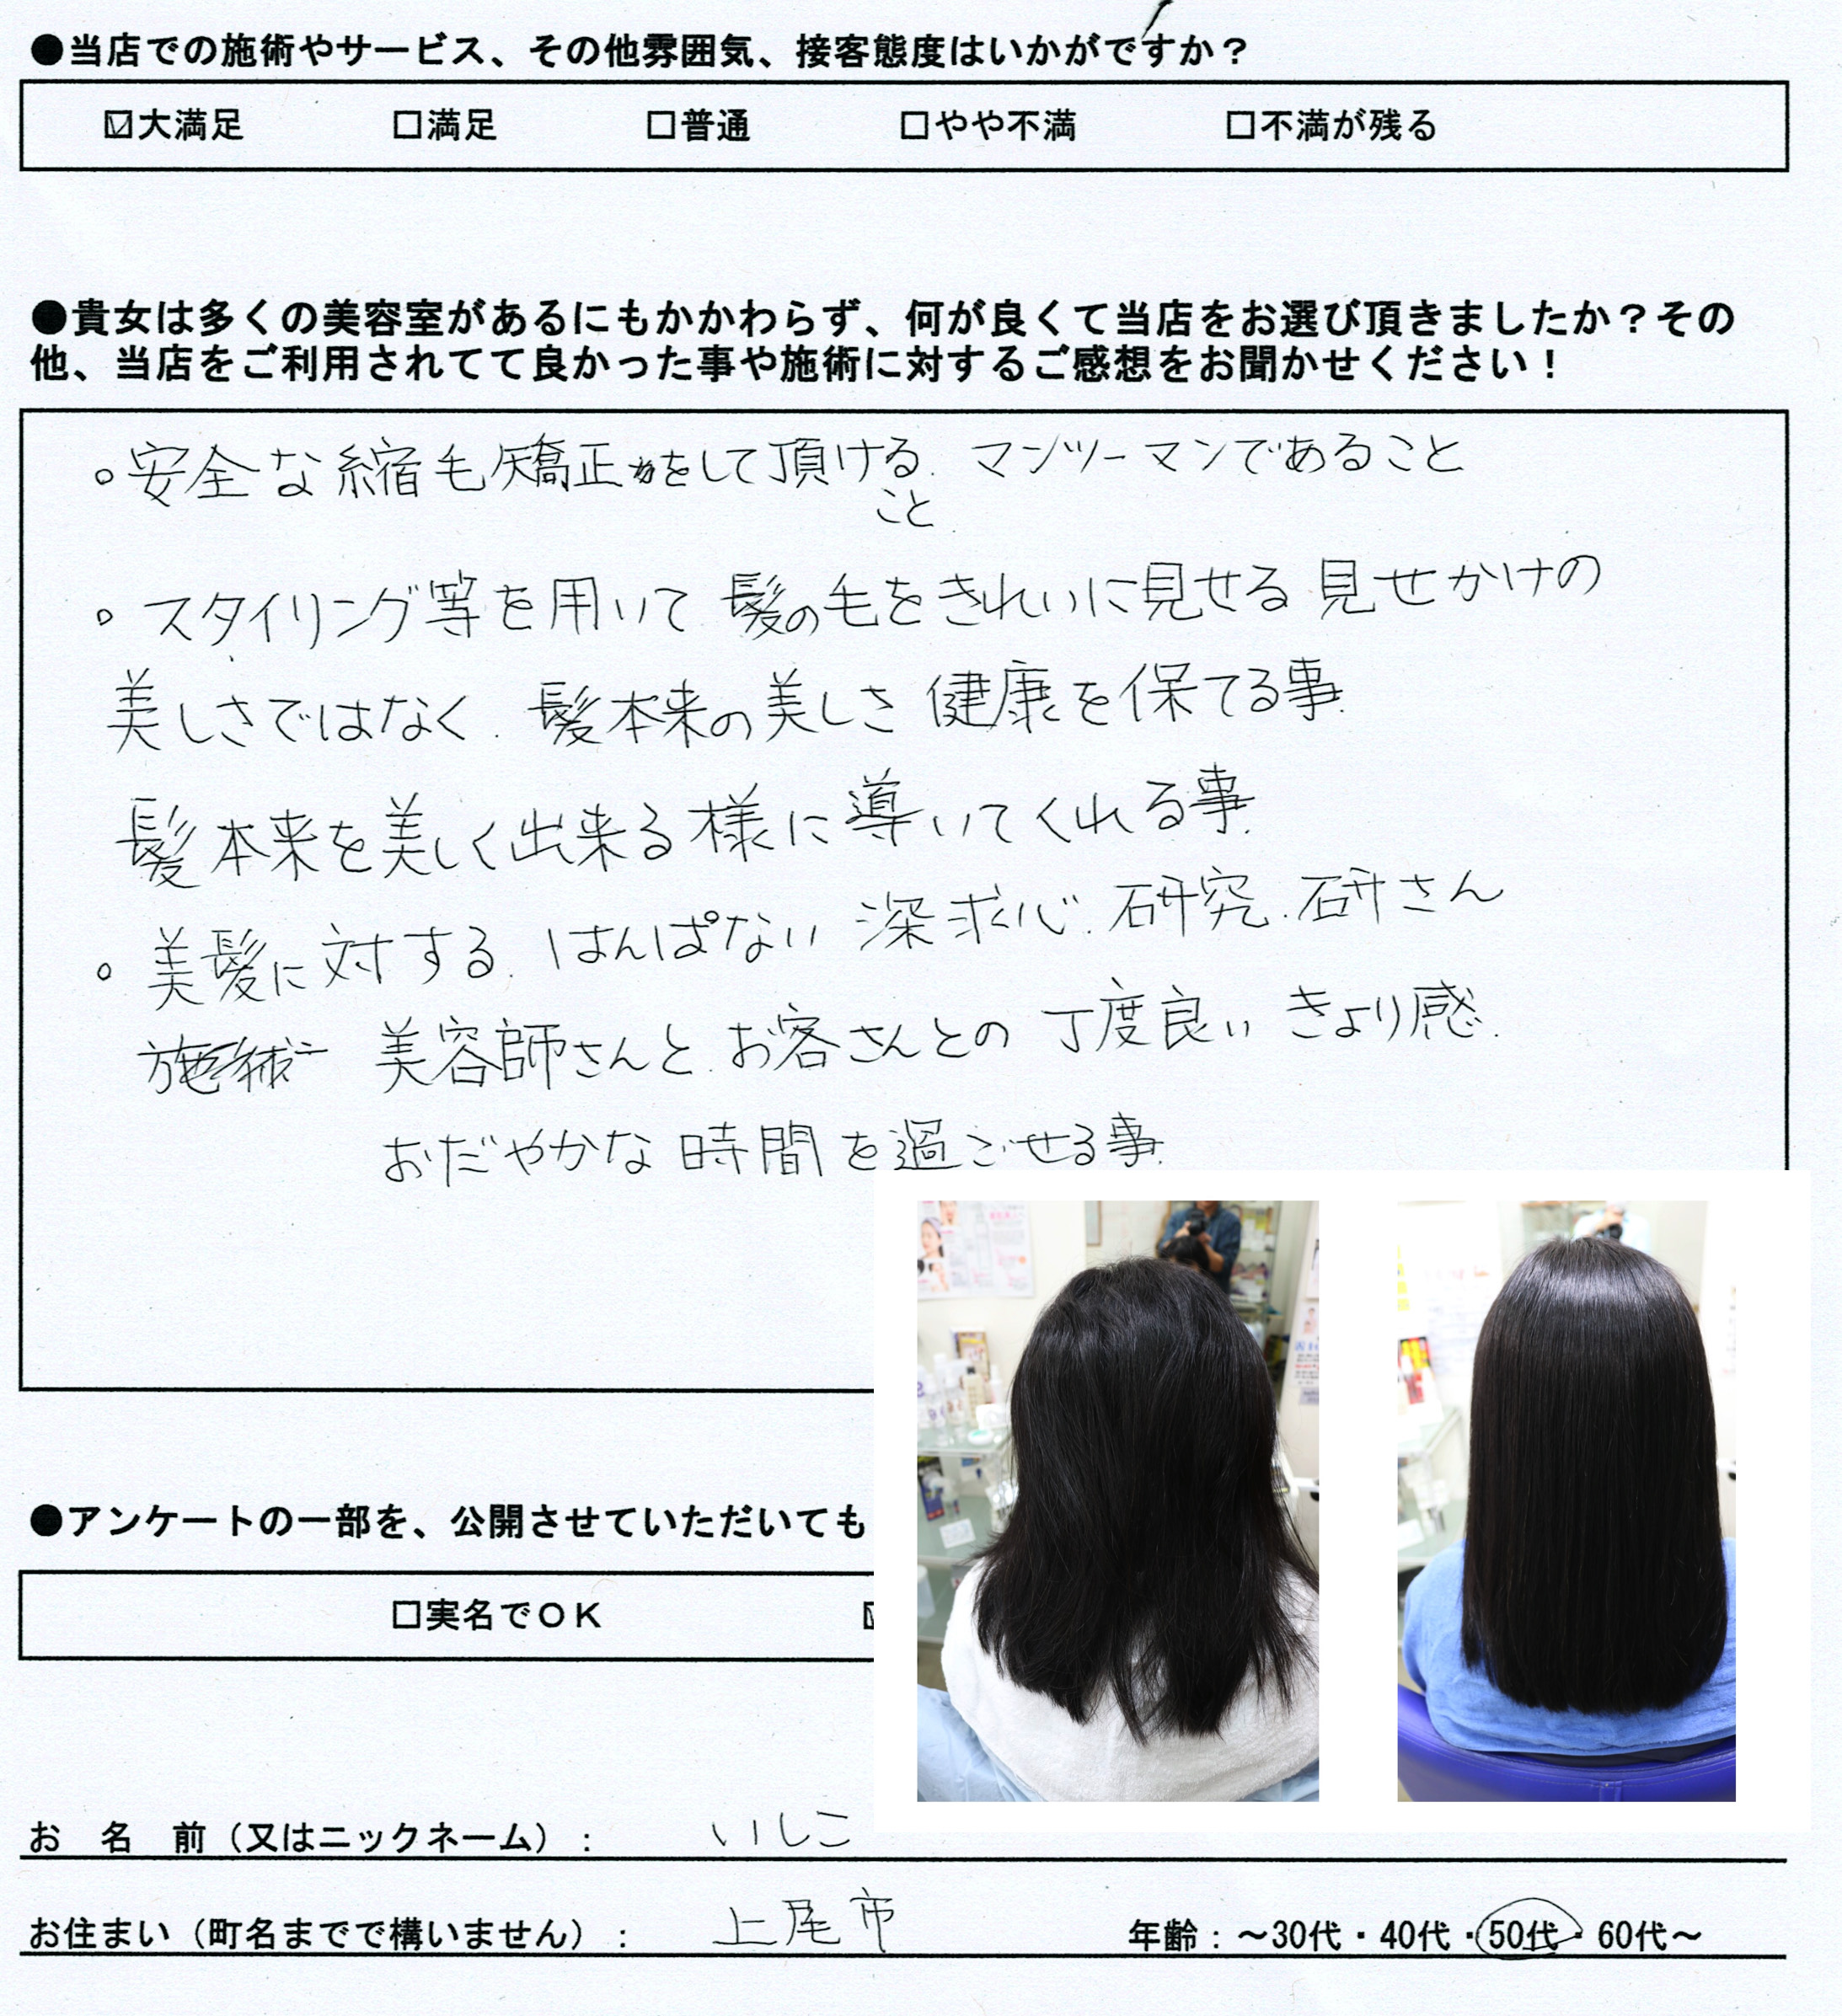 ●当店での施術やサービス、その他雰囲気、接客態度はいかがですか？
☑大満足 □満足 □普通 □やや不満 □不満が残る
●貴女は多くの美容室があるにもかかわらず、何が良くて当店をお選び頂きましたか？その
他、当店をご利用されてて良かった事や施術に対するご感想をお聞かせください！
。安全な縮毛矯正をして頂ける. マンツーマンであること
こと
。スタイリング等を用いて 髪の毛をきれいに見せる 見せかけの
美しさではなく. 髪本来の美しさ 健康を保てる事.
髪本来を美しく出来る様に導いてくれる事.
。美髪に対する. はんぱない 深求心. 研究. 研さん
美容師さんと.お客さんとの 丁度良い きょり感.
おだやかな 時間 を過ごせる事.
●アンケートの一部を、公開させていただいても
□実名でＯＫ
お　名　前（又はニックネーム）： いしこ
お住まい（町名までで構いません）： 上尾市 年齢：～30代・40代・50代・60代～